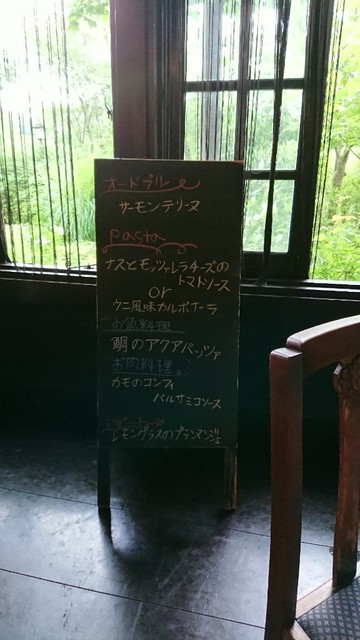 オードブル
サーモンテリーヌ
Pasta
ナスとモッツァレラチーズの
トマトソース
or
ウニ風味カルボナーラ
お魚料理
鯛のアクアパッツァ
お肉料理。
カモのコンフィ
バルサミコソース
レモングラスのブランマンジェ